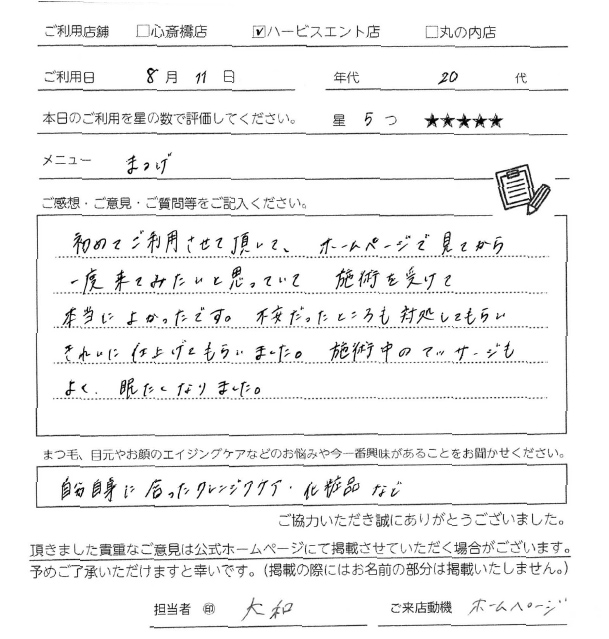 ご利用店舗 □心斎橋店 ☑ハービスエント店 □丸の内店
ご利用日 8月11日 年代 20代
本日のご利用を星の数で評価してください。 星 5つ ★★★★★
メニュー まつげ
ご感想・ご意見・ご質問等をご記入ください。
初めてご利用させて頂いて、ホームページで見てから
一度来てみたいと思っていて 施術を受けて
本当によかったです。不安だったところも対処してもらい
きれいに仕上げてもらいました。施術中のマッサージも
よく、眠たくなりました。
まつ毛、目元やお顔のエイジングケアなどのお悩みや今一番興味があることをお聞かせください。
自分自身に合ったクレンジングケア・化粧品など
ご協力いただき誠にありがとうございました。
頂きました貴重なご意見は公式ホームページにて掲載させていただく場合がございます。
予めご了承いただけますと幸いです。(掲載の際にはお名前の部分は掲載いたしません。)
担当者 ㊞ 大和 ご来店動機 ホームページ